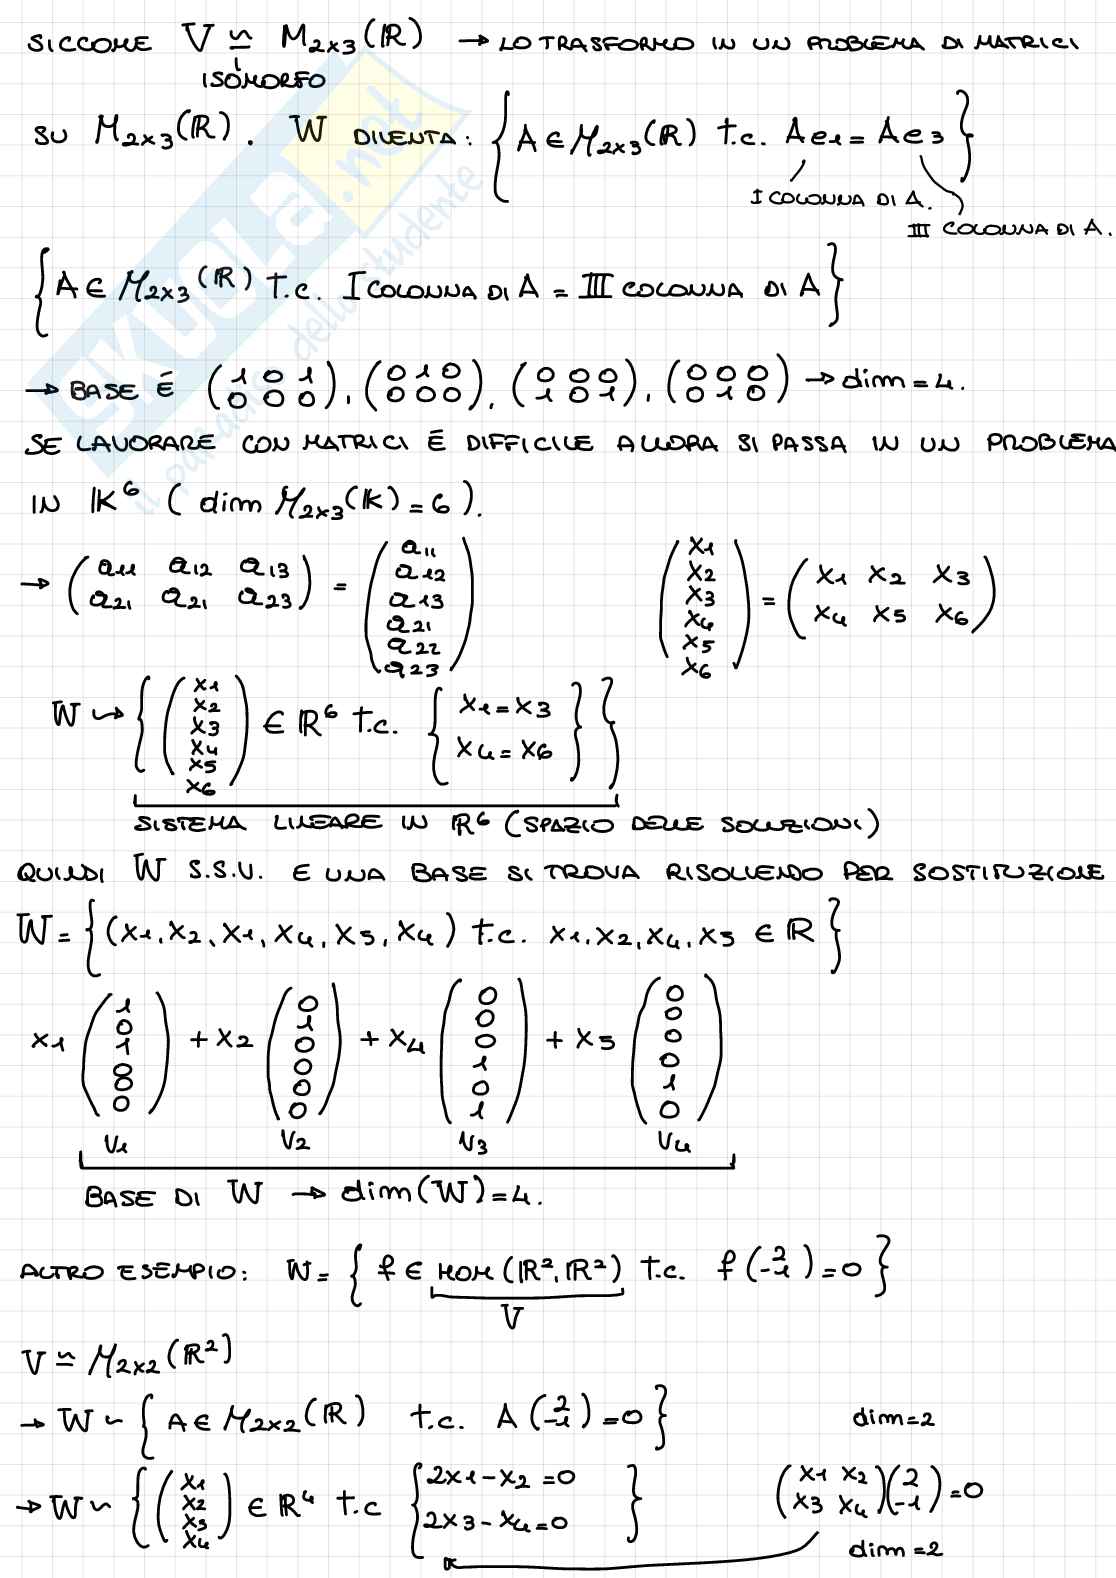 SICCOME V ≃ M₂ₓ₃(ℝ) → LO TRASFORMO IN UN PROBLEMA DI MATRICI
ISOMORFO
SU M₂ₓ₃(ℝ). W DIVENTA: { A ∈ M₂ₓ₃(ℝ) t.c. Ae₁ = Ae₃ }
I COLONNA DI A.
III COLONNA DI A.
{ A ∈ M₂ₓ₃(ℝ) T.C. I COLONNA DI A = III COLONNA DI A }
→ BASE È (1 0 1 / 0 0 0), (0 1 0 / 0 0 0), (0 0 0 / 1 0 1), (0 0 0 / 0 1 0) → dim = 4.
SE LAVORARE CON MATRICI È DIFFICILE ALLORA SI PASSA IN UN PROBLEMA
IN 𝕂⁶ ( dim M₂ₓ₃(𝕂) = 6 ).
→ (a₁₁ a₁₂ a₁₃ / a₂₁ a₂₁ a₂₃) = (a₁₁ / a₁₂ / a₁₃ / a₂₁ / a₂₂ / a₂₃) (x₁ / x₂ / x₃ / x₄ / x₅ / x₆) = (x₁ x₂ x₃ / x₄ x₅ x₆)
W ⤳ { (x₁ / x₂ / x₃ / x₄ / x₅ / x₆) ∈ ℝ⁶ t.c. { x₁ = x₃ / x₄ = x₆ } }
SISTEMA LINEARE IN ℝ⁶ (SPAZIO DELLE SOLUZIONI)
QUINDI W S.S.V. E UNA BASE SI TROVA RISOLVENDO PER SOSTITUZIONE
W = { (x₁, x₂, x₁, x₄, x₅, x₄) t.c. x₁, x₂, x₄, x₅ ∈ ℝ }
x₁ (1 / 0 / 1 / 0 / 0 / 0) + x₂ (0 / 1 / 0 / 0 / 0 / 0) + x₄ (0 / 0 / 0 / 1 / 0 / 1) + x₅ (0 / 0 / 0 / 0 / 1 / 0)
v₁ v₂ v₃ v₄
BASE DI W → dim(W) = 4.
ALTRO ESEMPIO: W = { f ∈ HOM(ℝ², ℝ²) t.c. f(2 / -1) = 0 }
V
V ≃ M₂ₓ₂(ℝ²)
→ W ∽ { A ∈ M₂ₓ₂(ℝ) t.c. A (2 / -1) = 0 } dim = 2
→ W ∽ { (x₁ / x₂ / x₃ / x₄) ∈ ℝ⁴ t.c { 2x₁ - x₂ = 0 / 2x₃ - x₄ = 0 } (x₁ x₂ / x₃ x₄)(2 / -1) = 0
dim = 2
SKUOLA.net
il paradiso dello studente